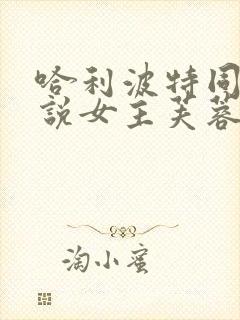 哈利波特同
說女主芙蓉
淘小蜜